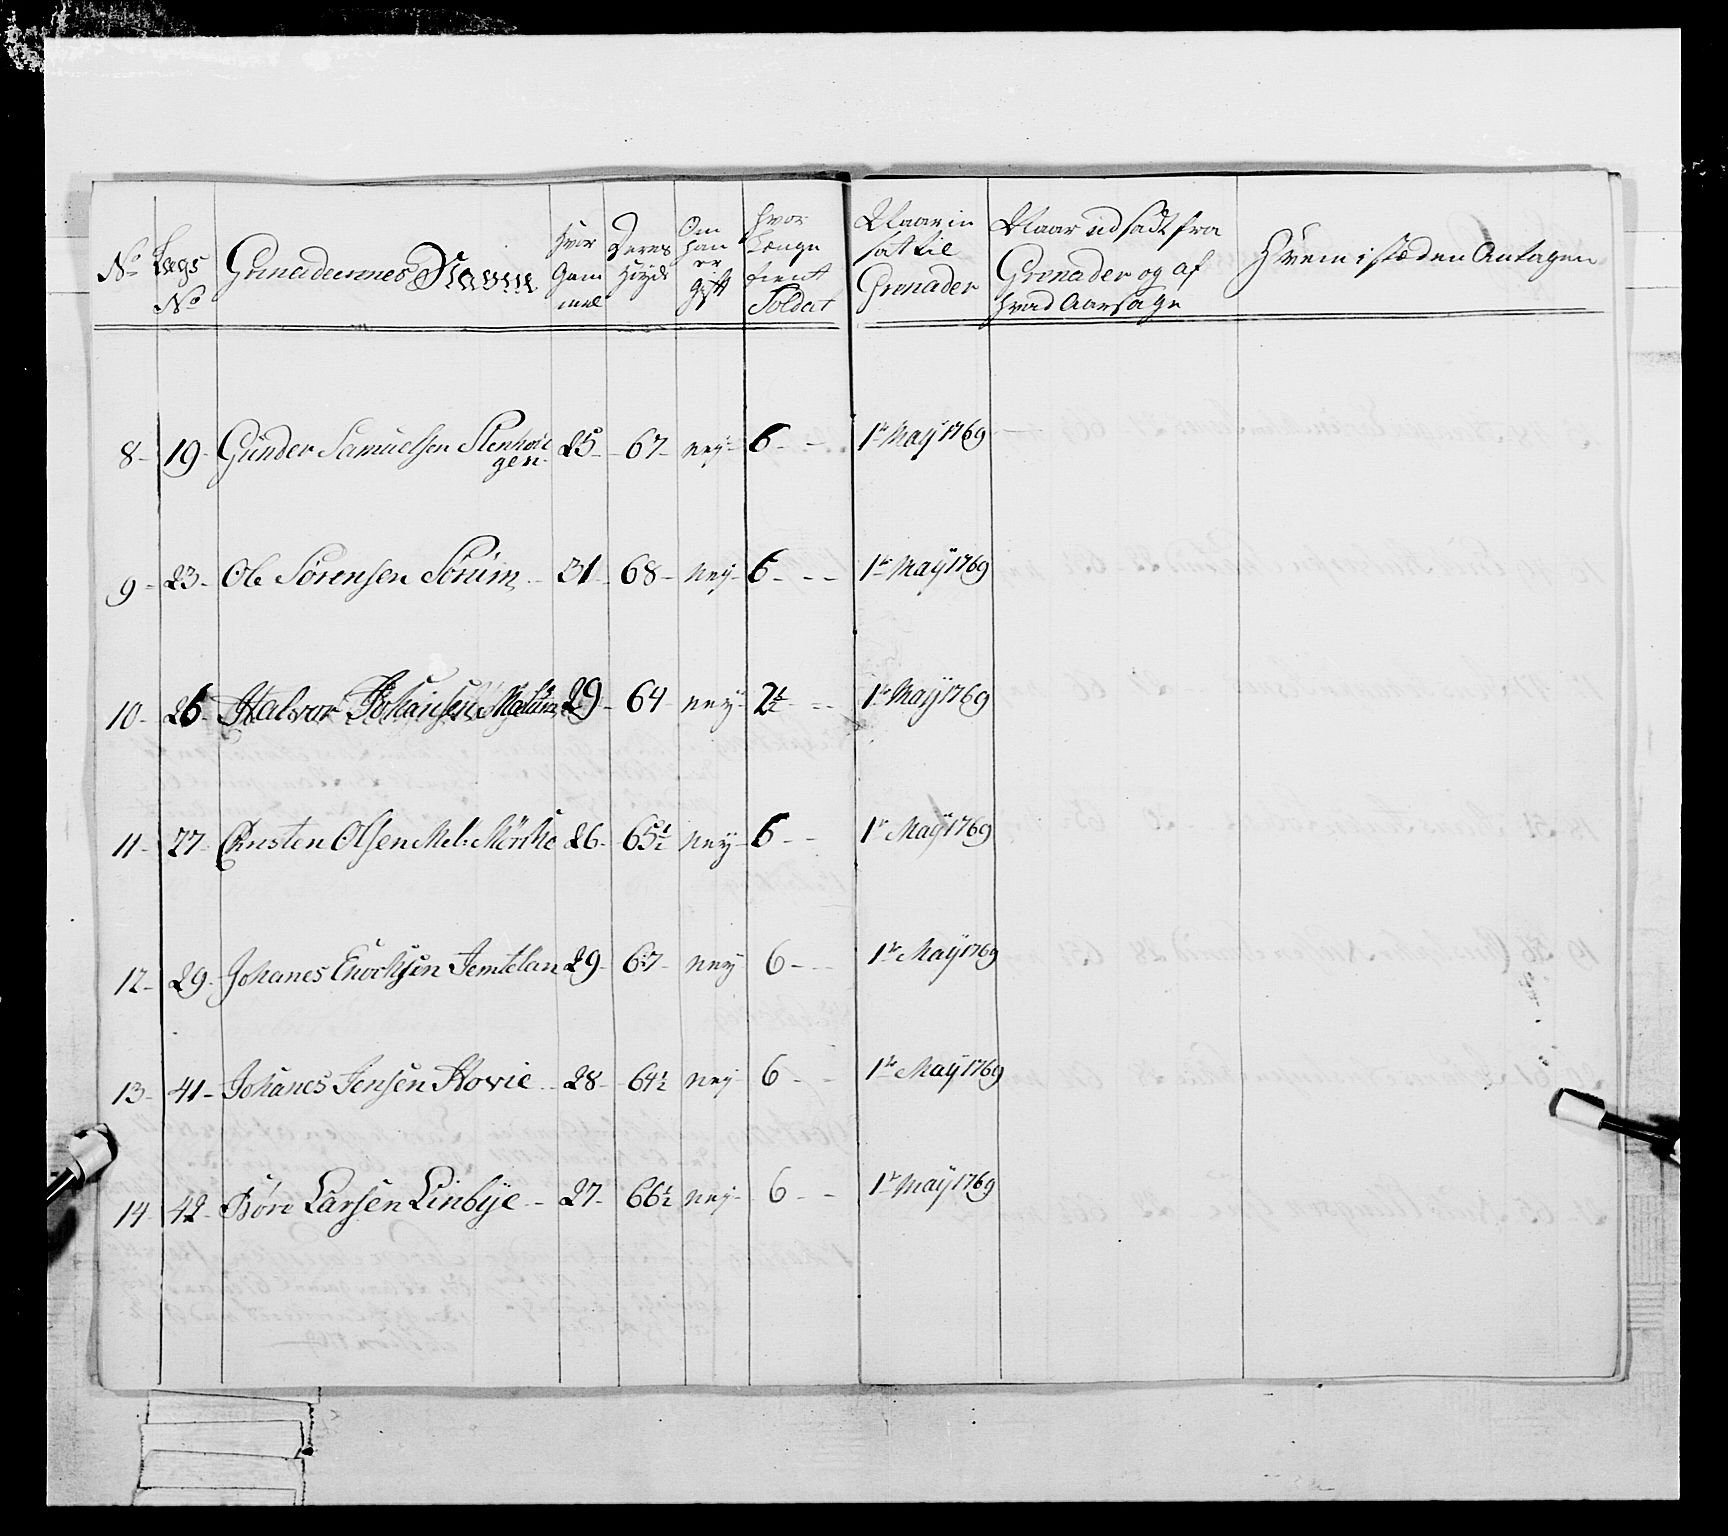 No Lægs No Grenaderernes Navne Hvor Gam mel Deres Höyde Om han er gift hvor længe tient Soldat Naar in sat til Grenader Naar udsadt fra Grenader og af hvad Aarsage Hvem i stæden Antagen
8 - 19 - Gunder Samuelsen 25 - 67 - neÿ - 6 - - 1te Maÿ 1769
9 - 23 - Ole Sörensen Sörüm - 31 - 68 - neÿ - 6 - - - 1te Maÿ 1769
10 - 26 - Halvor Johansen 29 - 64 - neÿ - 2½ - - 1te Maÿ 1769
11 - 27 - Christen Olsen Mel: Mörche 26 - 65½ neÿ - 6 - - 1te Maÿ 1769
12 - 29 - Johanes Enochsen Jemtelan 29 - 67 - neÿ 6 - - - 1te Maÿ 1769
13 - 41 - Johanes Jensen Hovie - 28 - 64½ neÿ 6 - - 1te Maÿ 1769
14 - 42 - Böre Larsen Linbÿe - 27 - 66½ neÿ - 6 - - 1te Maÿ 1769